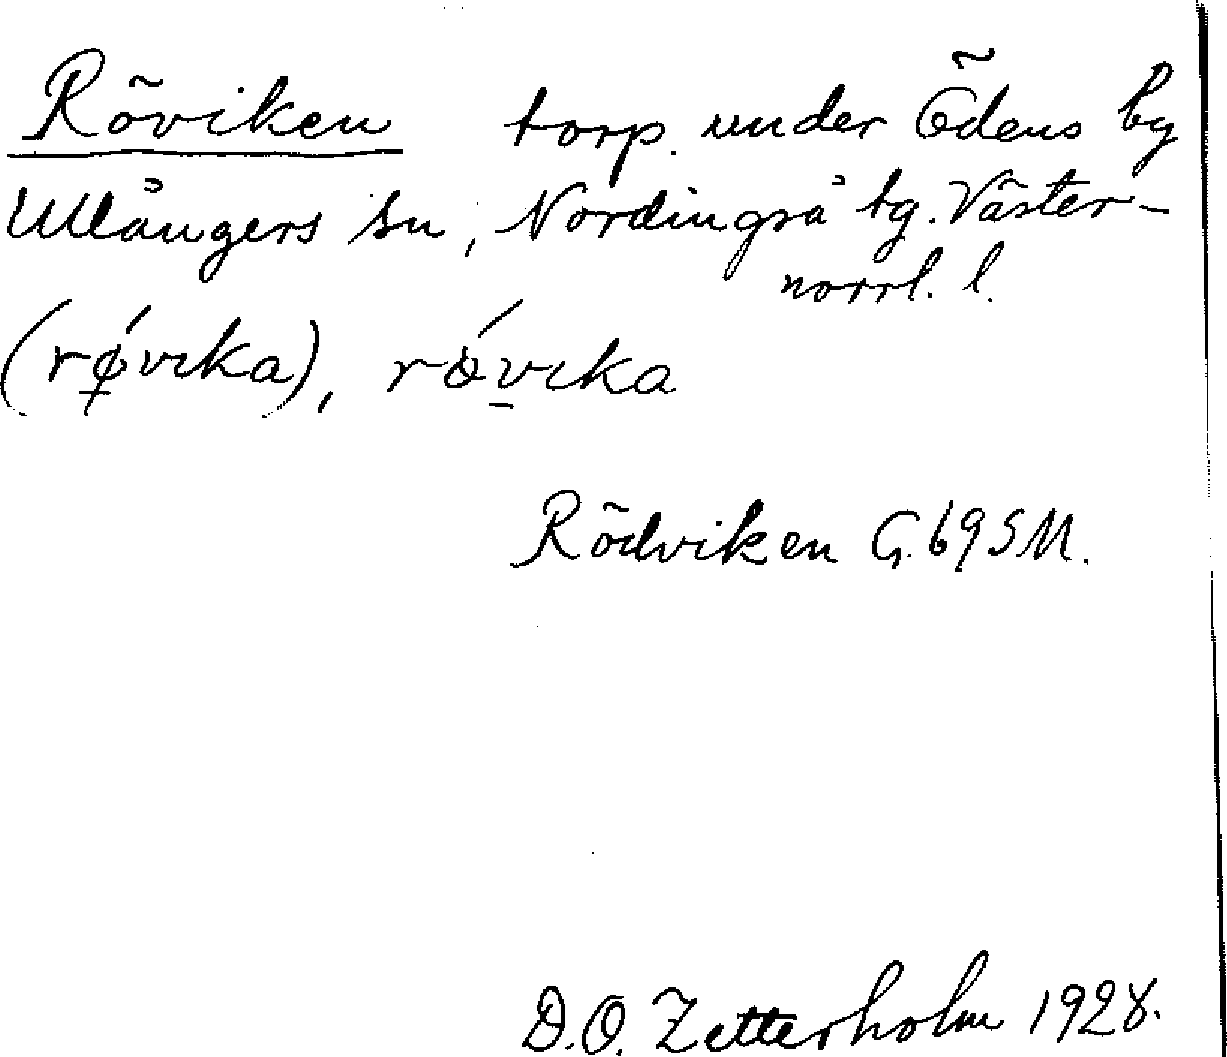 Röviken torp. under Ödens by
Ullångers sn, Nordingrå tg. Väster-
norrl. l.
(rǿvika), rǿvika
Rödviken G. 69 SM.
D.O. Zetterholm 1928.